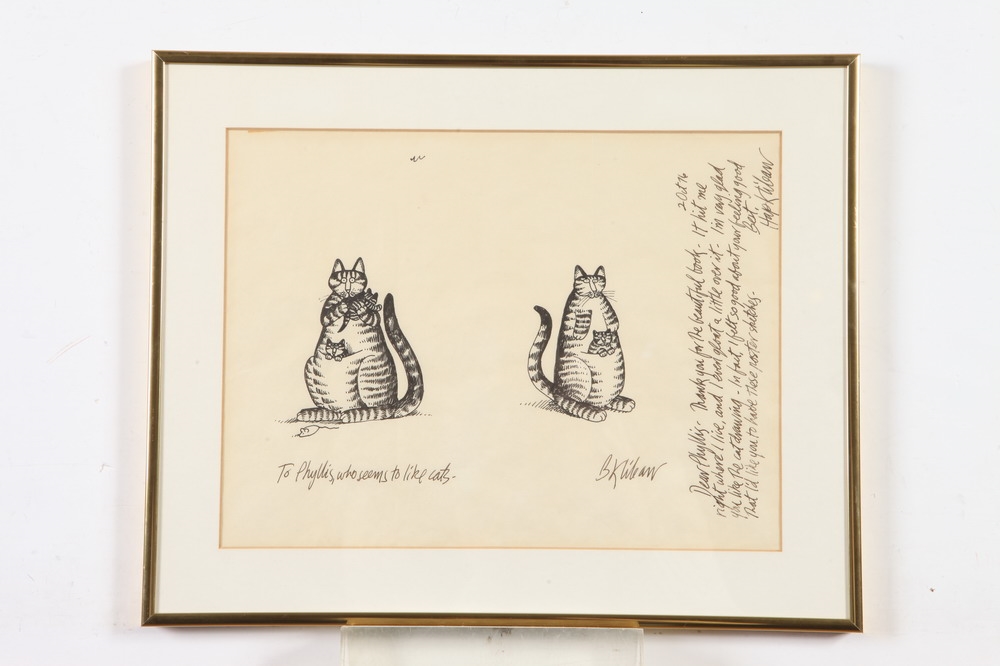 To Phyllis, who seems to like cats-
B Kliban
2 Oct 76
Dear Phyllis- Thank you for the beautiful book- It hit me
right where I live, and I even gloat a little over it- I'm very glad
you like the cat drawing- In fact, I felt so good about your feeling good
that I'd like you to have these poster sketches-
Best,
Hap Kliban